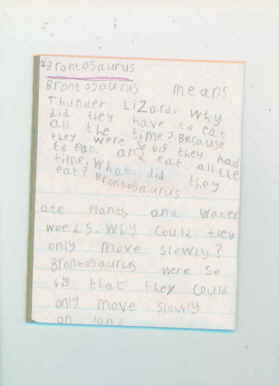 Brontosaurus
Brontosaurus means
Thunder Lizard. Why
did they have to eat
all the time? Because
they were so big they had
to eat and eat all the
time. What did they
eat? Brontosaurus
ate plants and water
weeds. Why could they
only move slowly?
Brontosaurus were so
big that they could
only move slowly
on land